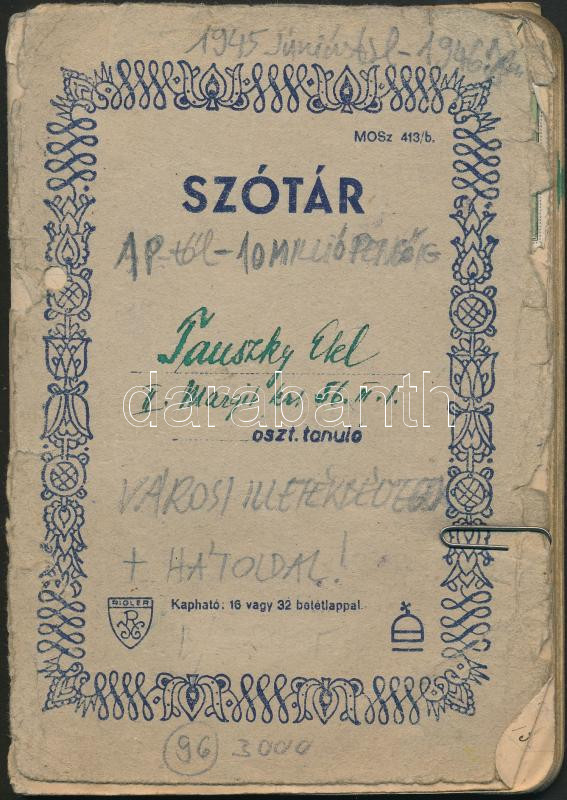 1945 Júniustól - 1946.
MOSz 413/b.
SZÓTÁR
1 P-től - 10 MILLIÓ PENGŐIG
Tauszky Etel
II. Margit krt 56. II. 1.
oszt. tanuló
darabanth
VÁROSI ILLETÉKBÉLYEGEK
+ HÁTOLDAL!
RIGLER
R
Kapható: 16 vagy 32 betétlappal.
96 3000